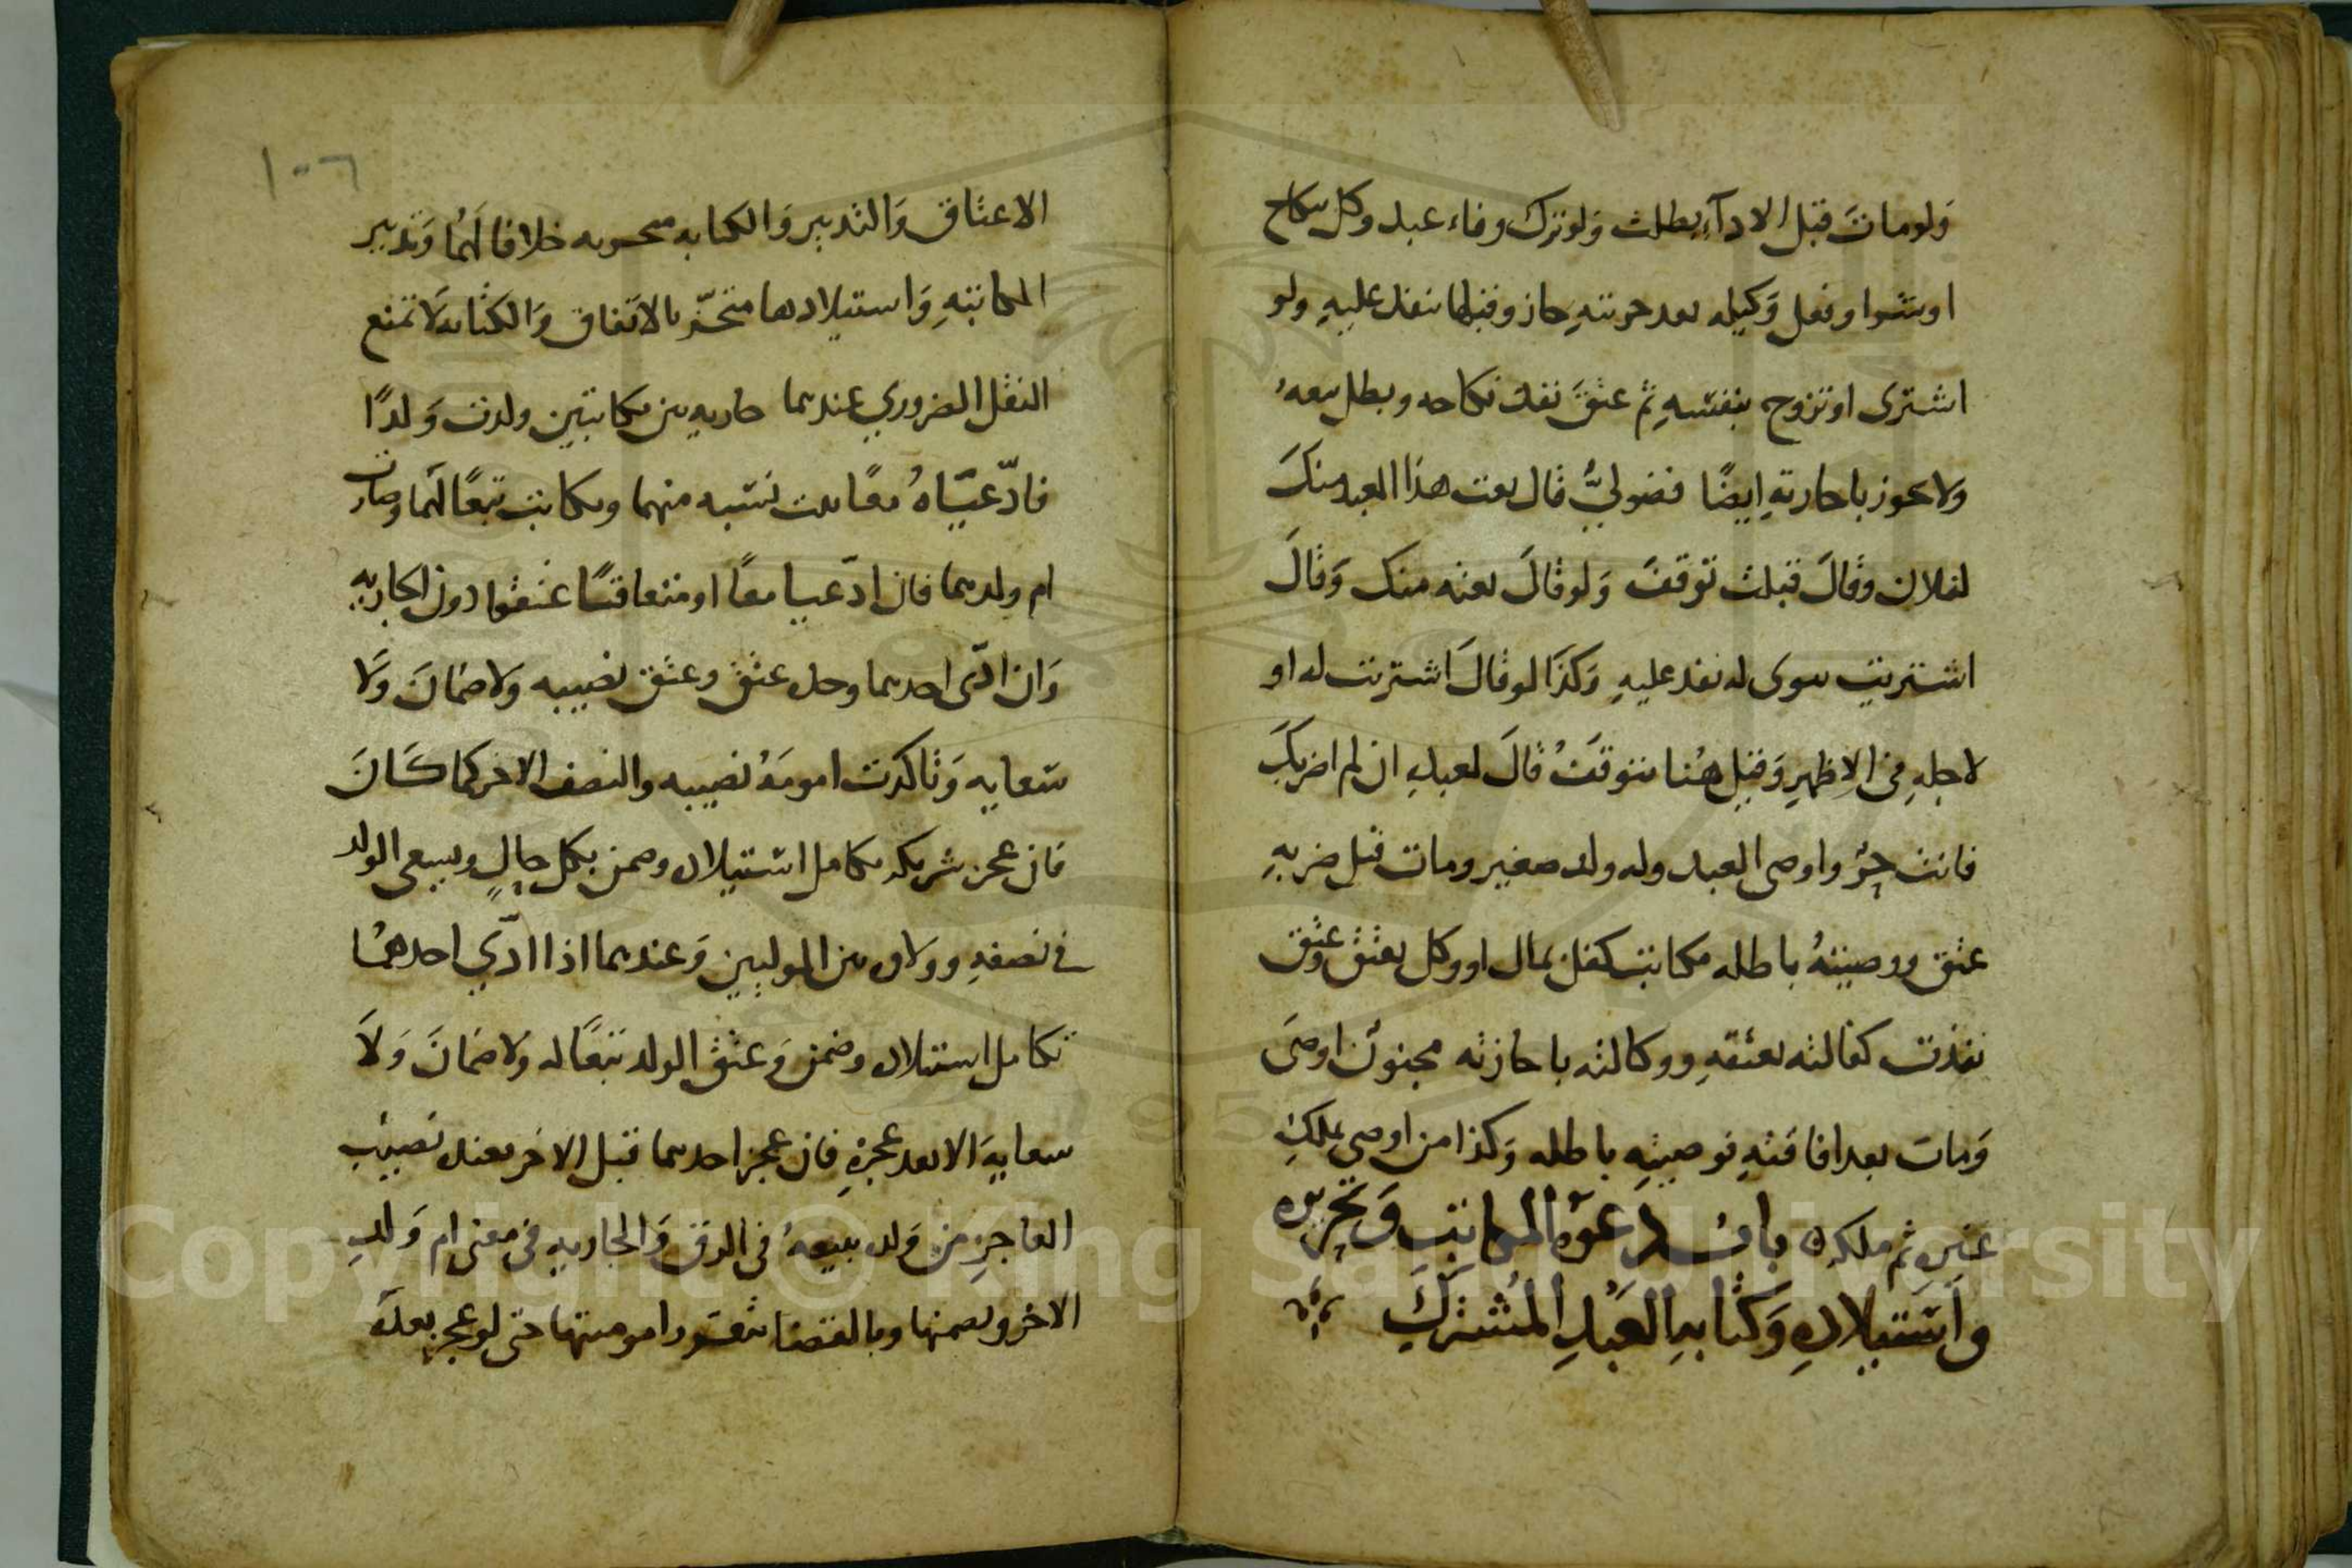 ولو ماتَ قبل الادآءِ بطلت وَلو ترك وفاء عبد وكل بنكاح
او بشرا وفعل وَكيله بعد حريتهِ جاز وقبلها ينفذ عليهِ ولو
اشترى او تزوج بنفسهِ ثم عتقَ نفذ نكاحه وبطل بيعهُ
ولا يجوز باجازتهِ ايضًا فضوليٌّ قال بعت هذا العبد منكَ
لفلان وقالَ قبلت توقفَ وَلو قالَ بعته منك وَقالَ
اشتريت سوى له نفذ عليهِ وَكذَا لو قالَ اشتريت له او
لاجلهِ في الاظهرِ وَقيل هُنا يتوقفُ قالَ لعبدهِ ان لم اضربكَ
فانت حرٌ واوصى لعبد وله ولد صغير ومات قبل ضربهِ
عتق ووصيتهُ باطله مكاتب كفل بمال او وكل بعتق وعتق
نفذت كفالته بعتقهِ ووكالته باجازته مجنون اوصَى
وَمات بعد افاقتهِ فوصيتهِ باطله وَكذا من اوصى بملكِ
غيرهِ ثم ملكه باب دعوة المكاتبِ وَتحريره
واستيلادهِ وَكتابهِ العَبدِ المُشتركِ
١٠٦
الاعتاق وَالتدبير وَالكتابه متجزيه خلافا لَهُما وَتدبير
المكاتبهِ وَاستيلادها متجزّ بالاتفاق وَالكتابه لَا تمنع
النقل الضروري عندهما جاريه بين مكاتبين ولدت وَلدًا
فادّعياهُ معًا ثبت نسبه منهما ومكاتب تبعًا لهما وصارت
ام ولدهما فان ادّعيا معًا او متعاقبًا عتقوا دون الجاريه
وَان ادّى احدهما وحده عتق وعتق نصيبه وَلا ضمانَ وَلَا
سعايه وَتاكدت امومةُ نصيبه والنصف الاخر كما كَانَ
فان عجز شريكه تكامل استيلاده وضمن بكل حالٍ ويسعى الولد
في نصفهِ وولاه بين الموليين وَعندهما اذا ادّي احدهُما
تكامل استيلاده وضمن وَعتق الولد تبعًا له وَلا ضمانَ وَلَا
سعايهَ الا بعد عجزهِ فان عجز احدهما قبل الاخر بعده نصيب
العاجزِ من وَلده يبيعهُ في الرق وَالجاريه في معنى ام وَلدِ
الاخر ويضمنها وبالقضا تتقرر امومتها حتى لو عجز بعدهُ